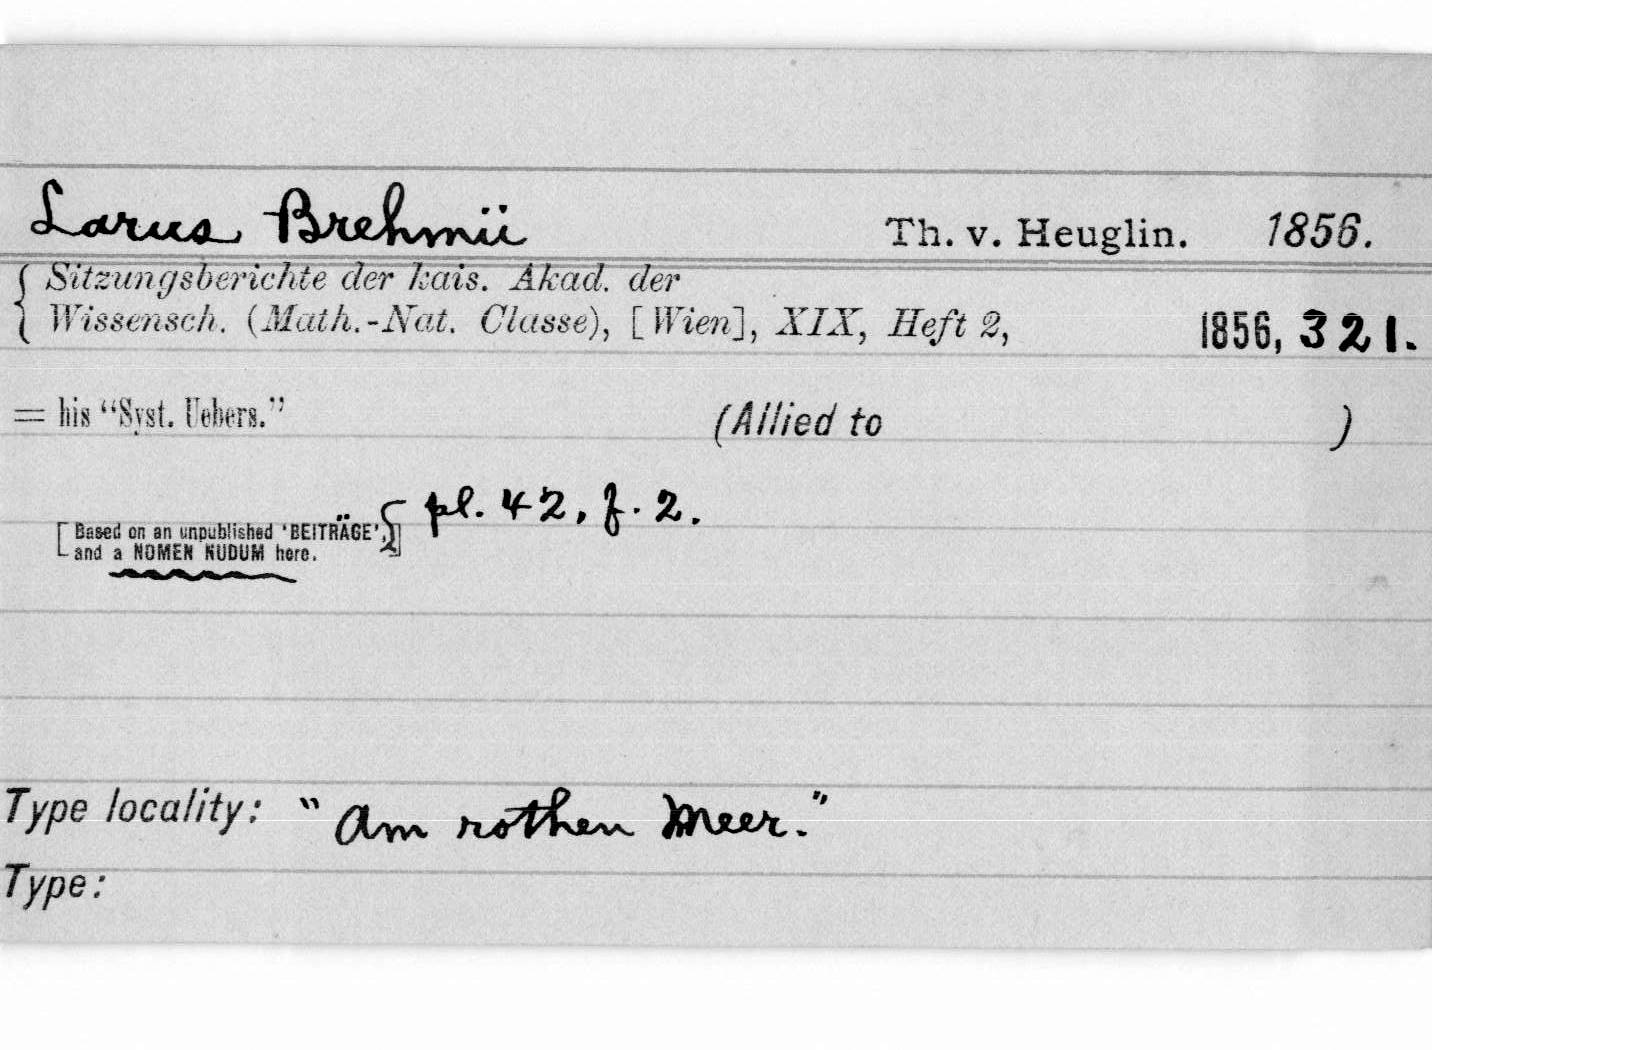 Larus Brehmii Th. v. Heuglin. 1856.
Sitzungsberichte der kais. Akad. der
Wissensch. (Math.-Nat. Classe), [Wien], XIX, Heft 2, 1856, 321.
= his “Syst. Uebers.” (Allied to )
pl. 42, f. 2.
[Based on an unpublished ‘BEITRÄGE’,
and a NOMEN NUDUM here.]
Type locality: "Am rothen Meer."
Type: